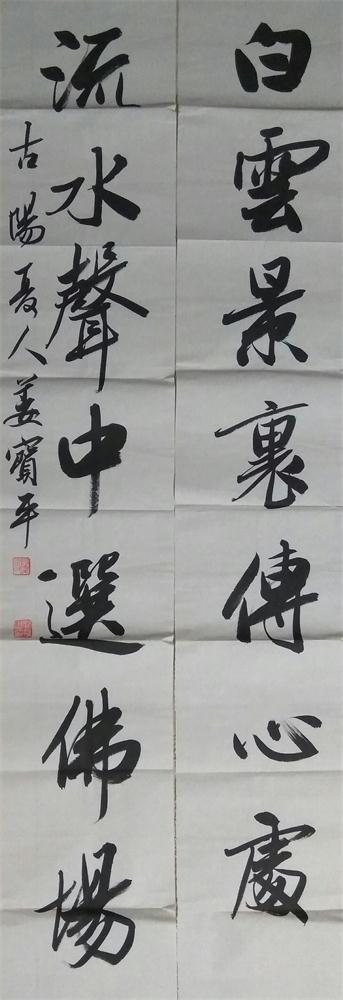 白雲景裏傳心處
流水聲中選佛場
古陽夏人姜寶平